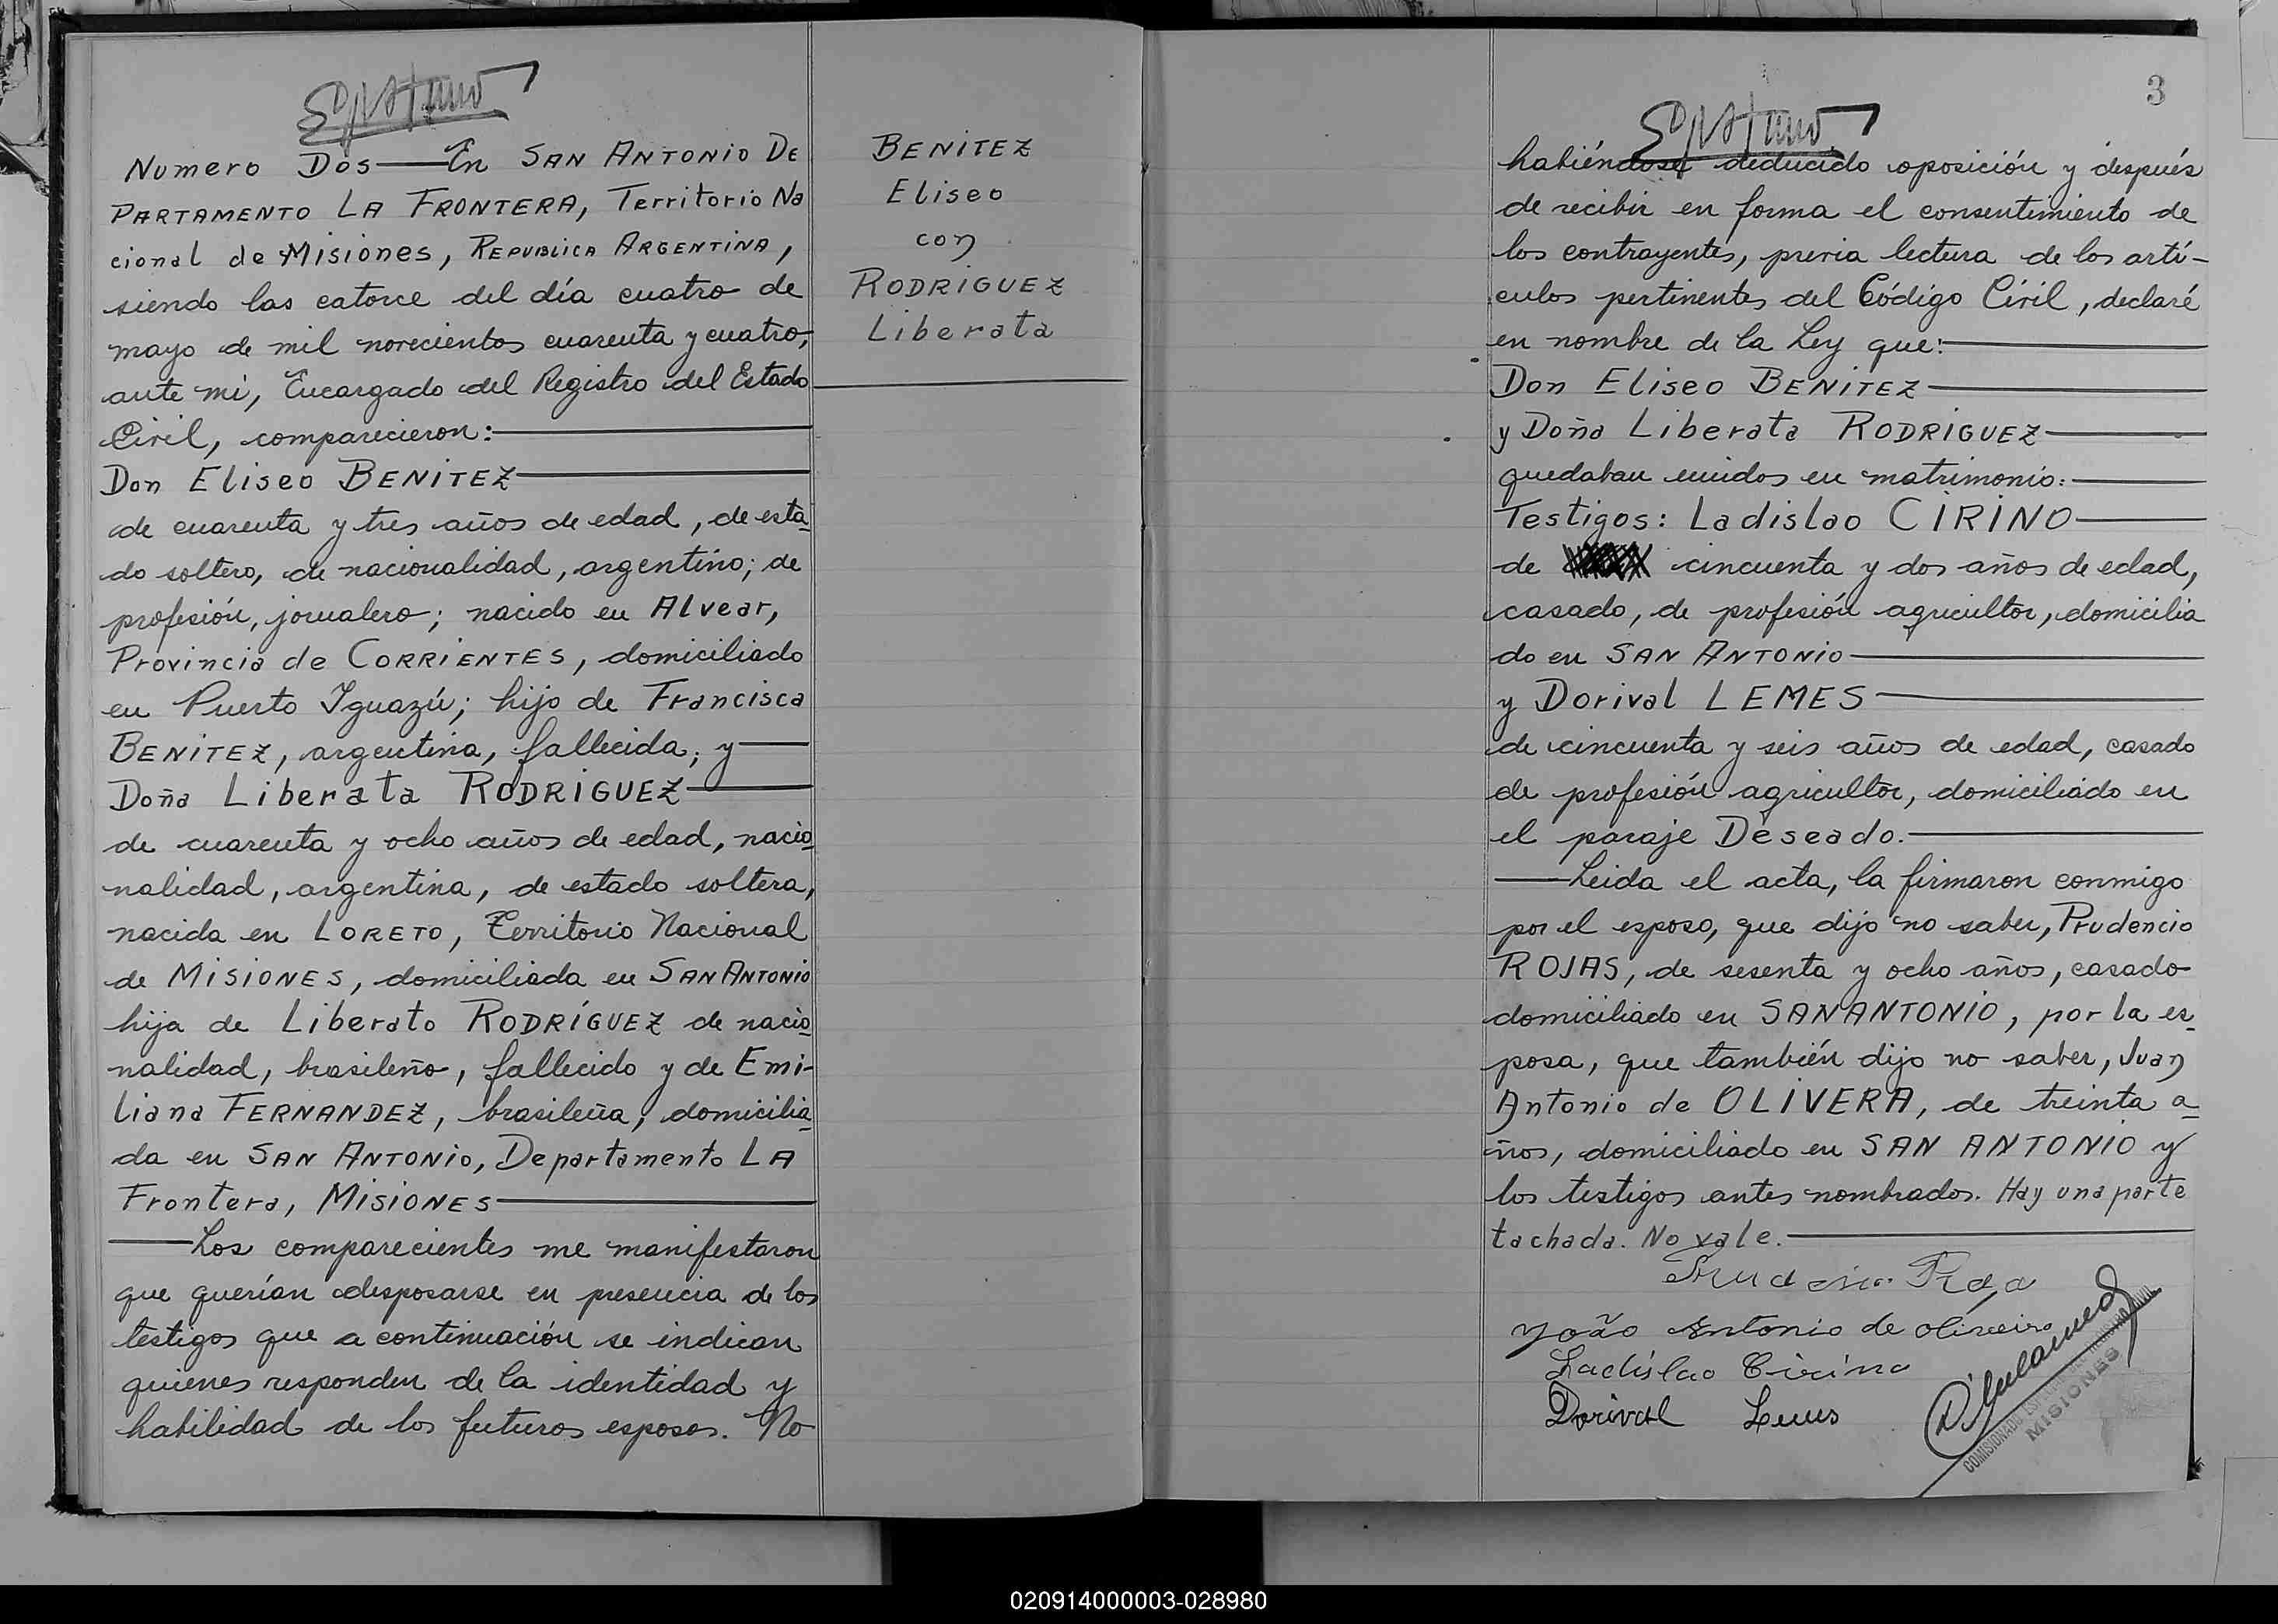 Numero Dos — En SAN ANTONIO DE
PARTAMENTO LA FRONTERA, Territorio Na
cional de Misiones, REPUBLICA ARGENTINA,
siendo las catorce del día cuatro de
mayo de mil novecientos cuarenta y cuatro,
ante mi, Encargado del Registro del Estado
Civil, comparecieron:
Don Eliseo BENITEZ
de cuarenta y tres años de edad, de esta
do soltero, de nacionalidad, argentino; de
profesión, jornalero; nacido en Alvear,
Provincia de CORRIENTES, domiciliado
en Puerto Iguazú; hijo de Francisca
BENITEZ, argentina, fallecida; y
Doña Liberata RODRIGUEZ
de cuarenta y ocho años de edad, nacio
nalidad, argentina, de estado soltera,
nacida en LORETO, Territorio Nacional
de MISIONES, domiciliada en SAN ANTONIO
hija de Liberato RODRÍGUEZ de nacio
nalidad, brasileño, fallecido y de Emi-
liana FERNANDEZ, brasileña, domicilia
da en SAN ANTONIO, Departamento LA
Frontera, MISIONES
Los comparecientes me manifestaron
que querían desposarse en presencia de los
testigos que a continuación se indican
quienes responden de la identidad y
habilidad de los futuros esposos. No
BENITEZ
Eliseo
con
RODRIGUEZ
Liberata
3
habiéndose deducido oposición y después
de recibir en forma el consentimiento de
los contrayentes, previa lectura de los artí-
culos pertinentes del Código Civil, declaré
en nombre de la Ley que:
Don Eliseo BENITEZ
y Doña Liberata RODRIGUEZ
quedaban unidos en matrimonio:
Testigos: Ladislao CIRINO
de cincuenta y dos años de edad,
casado, de profesión agricultor, domicilia
do en SAN ANTONIO
y Dorival LEMES
de cincuenta y seis años de edad, casado
de profesión agricultor, domiciliado en
el paraje Deseado.
Leida el acta, la firmaron conmigo
por el esposo, que dijo no saber, Prudencio
ROJAS, de sesenta y ocho años, casado
domiciliado en SAN ANTONIO, por la es
posa, que también dijo no saber, Juan
Antonio de OLIVERA, de treinta a
ños, domiciliado en SAN ANTONIO y
los testigos antes nombrados. Hay una parte
tachada. No vale.
João Antonio de oliveira
Ladislao Cirino
Dorival
MISIONES
020914000003-028980